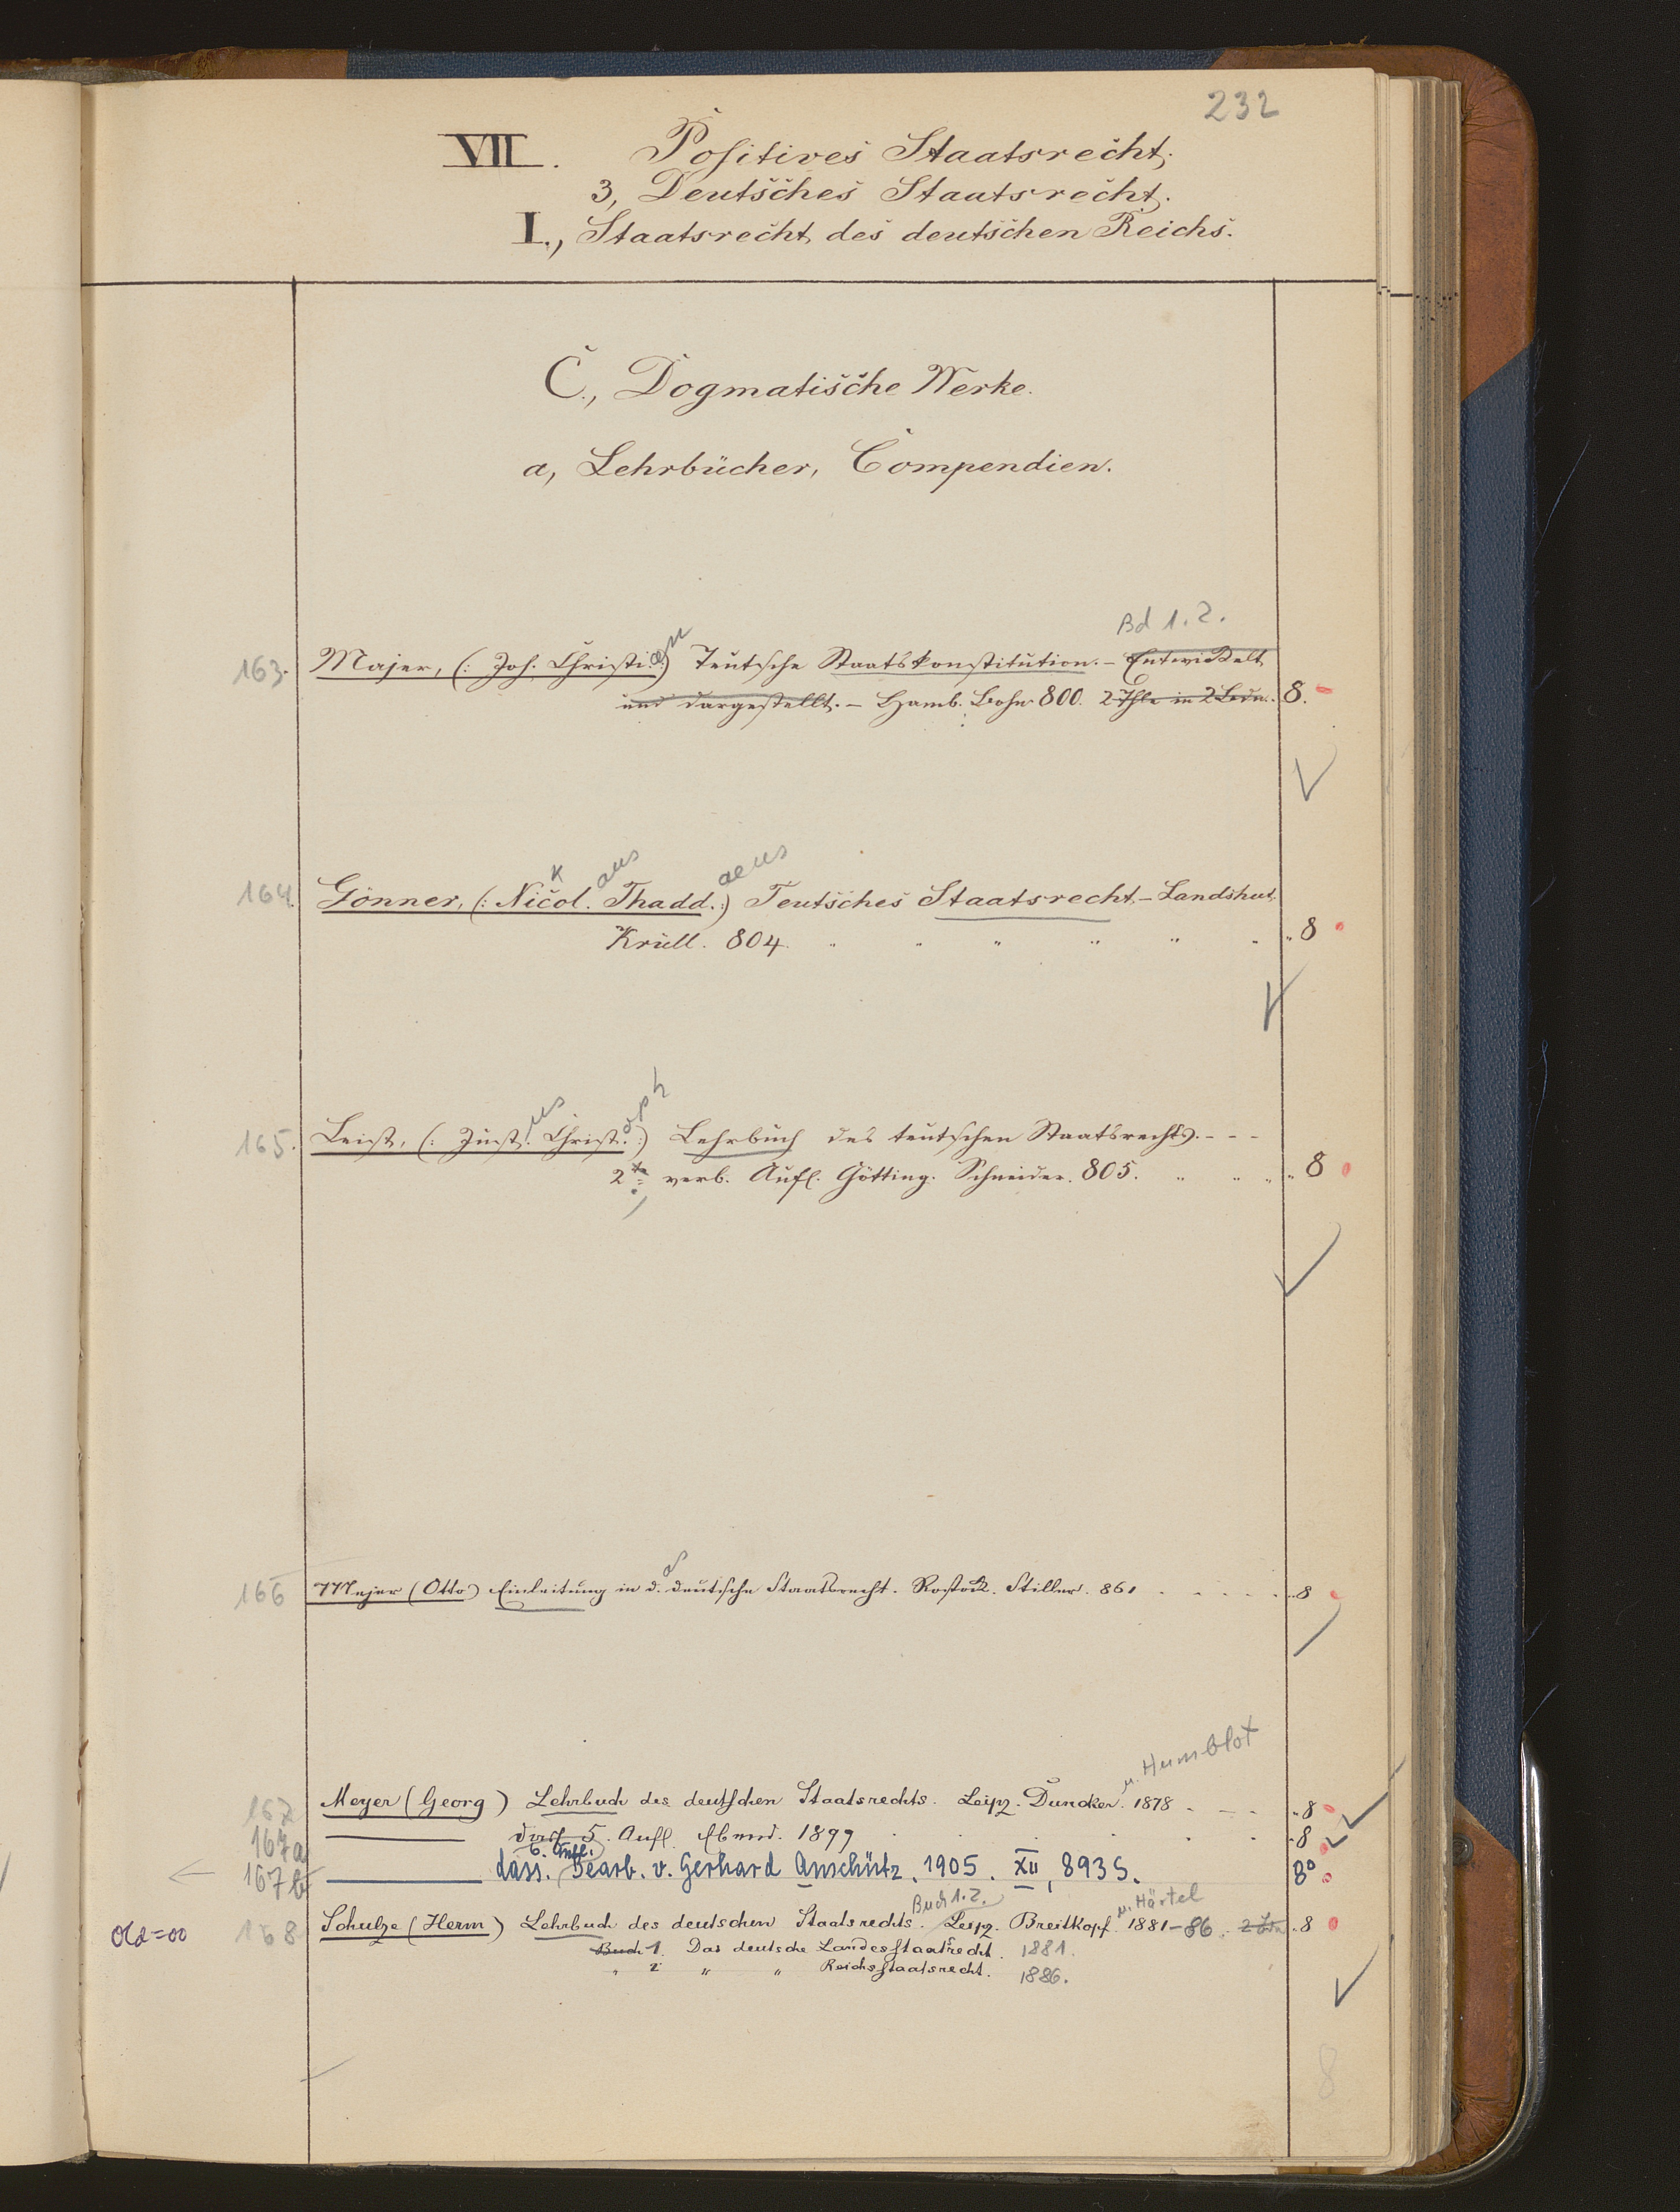 232
VII. Positives Staatsrecht;
3, Deutsches Staatsrecht.
I., Staatsrecht des deutschen Reichs.
C., Dogmatische Werke.
a, Lehrbücher, Compendien.
Bd 1. 2.
163. Majer, (: Joh. Christian :) Teutsche Staatskonstitution. – Entwickelt
und dargestellt. – Hamb. Bohn 800. 2 Thle in 2 Bdn. 8.
k aus aeus
164. Gönner, (: Nicol. Thadd. :) Teutsches Staatsrecht, – Landshut,
Krüll. 804. " " " " " " " 8
us oph
165. Leist, (: Just. Christ. :) Lehrbuch des teutschen Staatsrechts. - - -
2te verb. Aufl. Götting. Schneider. 805. " " " " 8
s
166 Mejer (Otto) Einleitung in d. deutsche Staatsrecht. Rostock. Stiller. 861 8
u. Humblot
167 Meyer (Georg) Lehrbuch des deutschen Staatsrechts. Leipz. Duncker. 1878 8
167a 5. Aufl. Ebend. 1899 8
6. Aufl.
167b dass. Bearb. v. Gerhard Anschütz. 1905. XII, 893 S. 8°
Buch 1. 2. u. Härtel
Old=00 168 Schulze (Herm) Lehrbuch des deutschen Staatsrechts. Leipz. Breitkopf. 1881-86. 2 Bde 8
Buch 1. Das deutsche Landesstaatsrecht. 1881.
" 2 " " Reichsstaatsrecht. 1886.
8